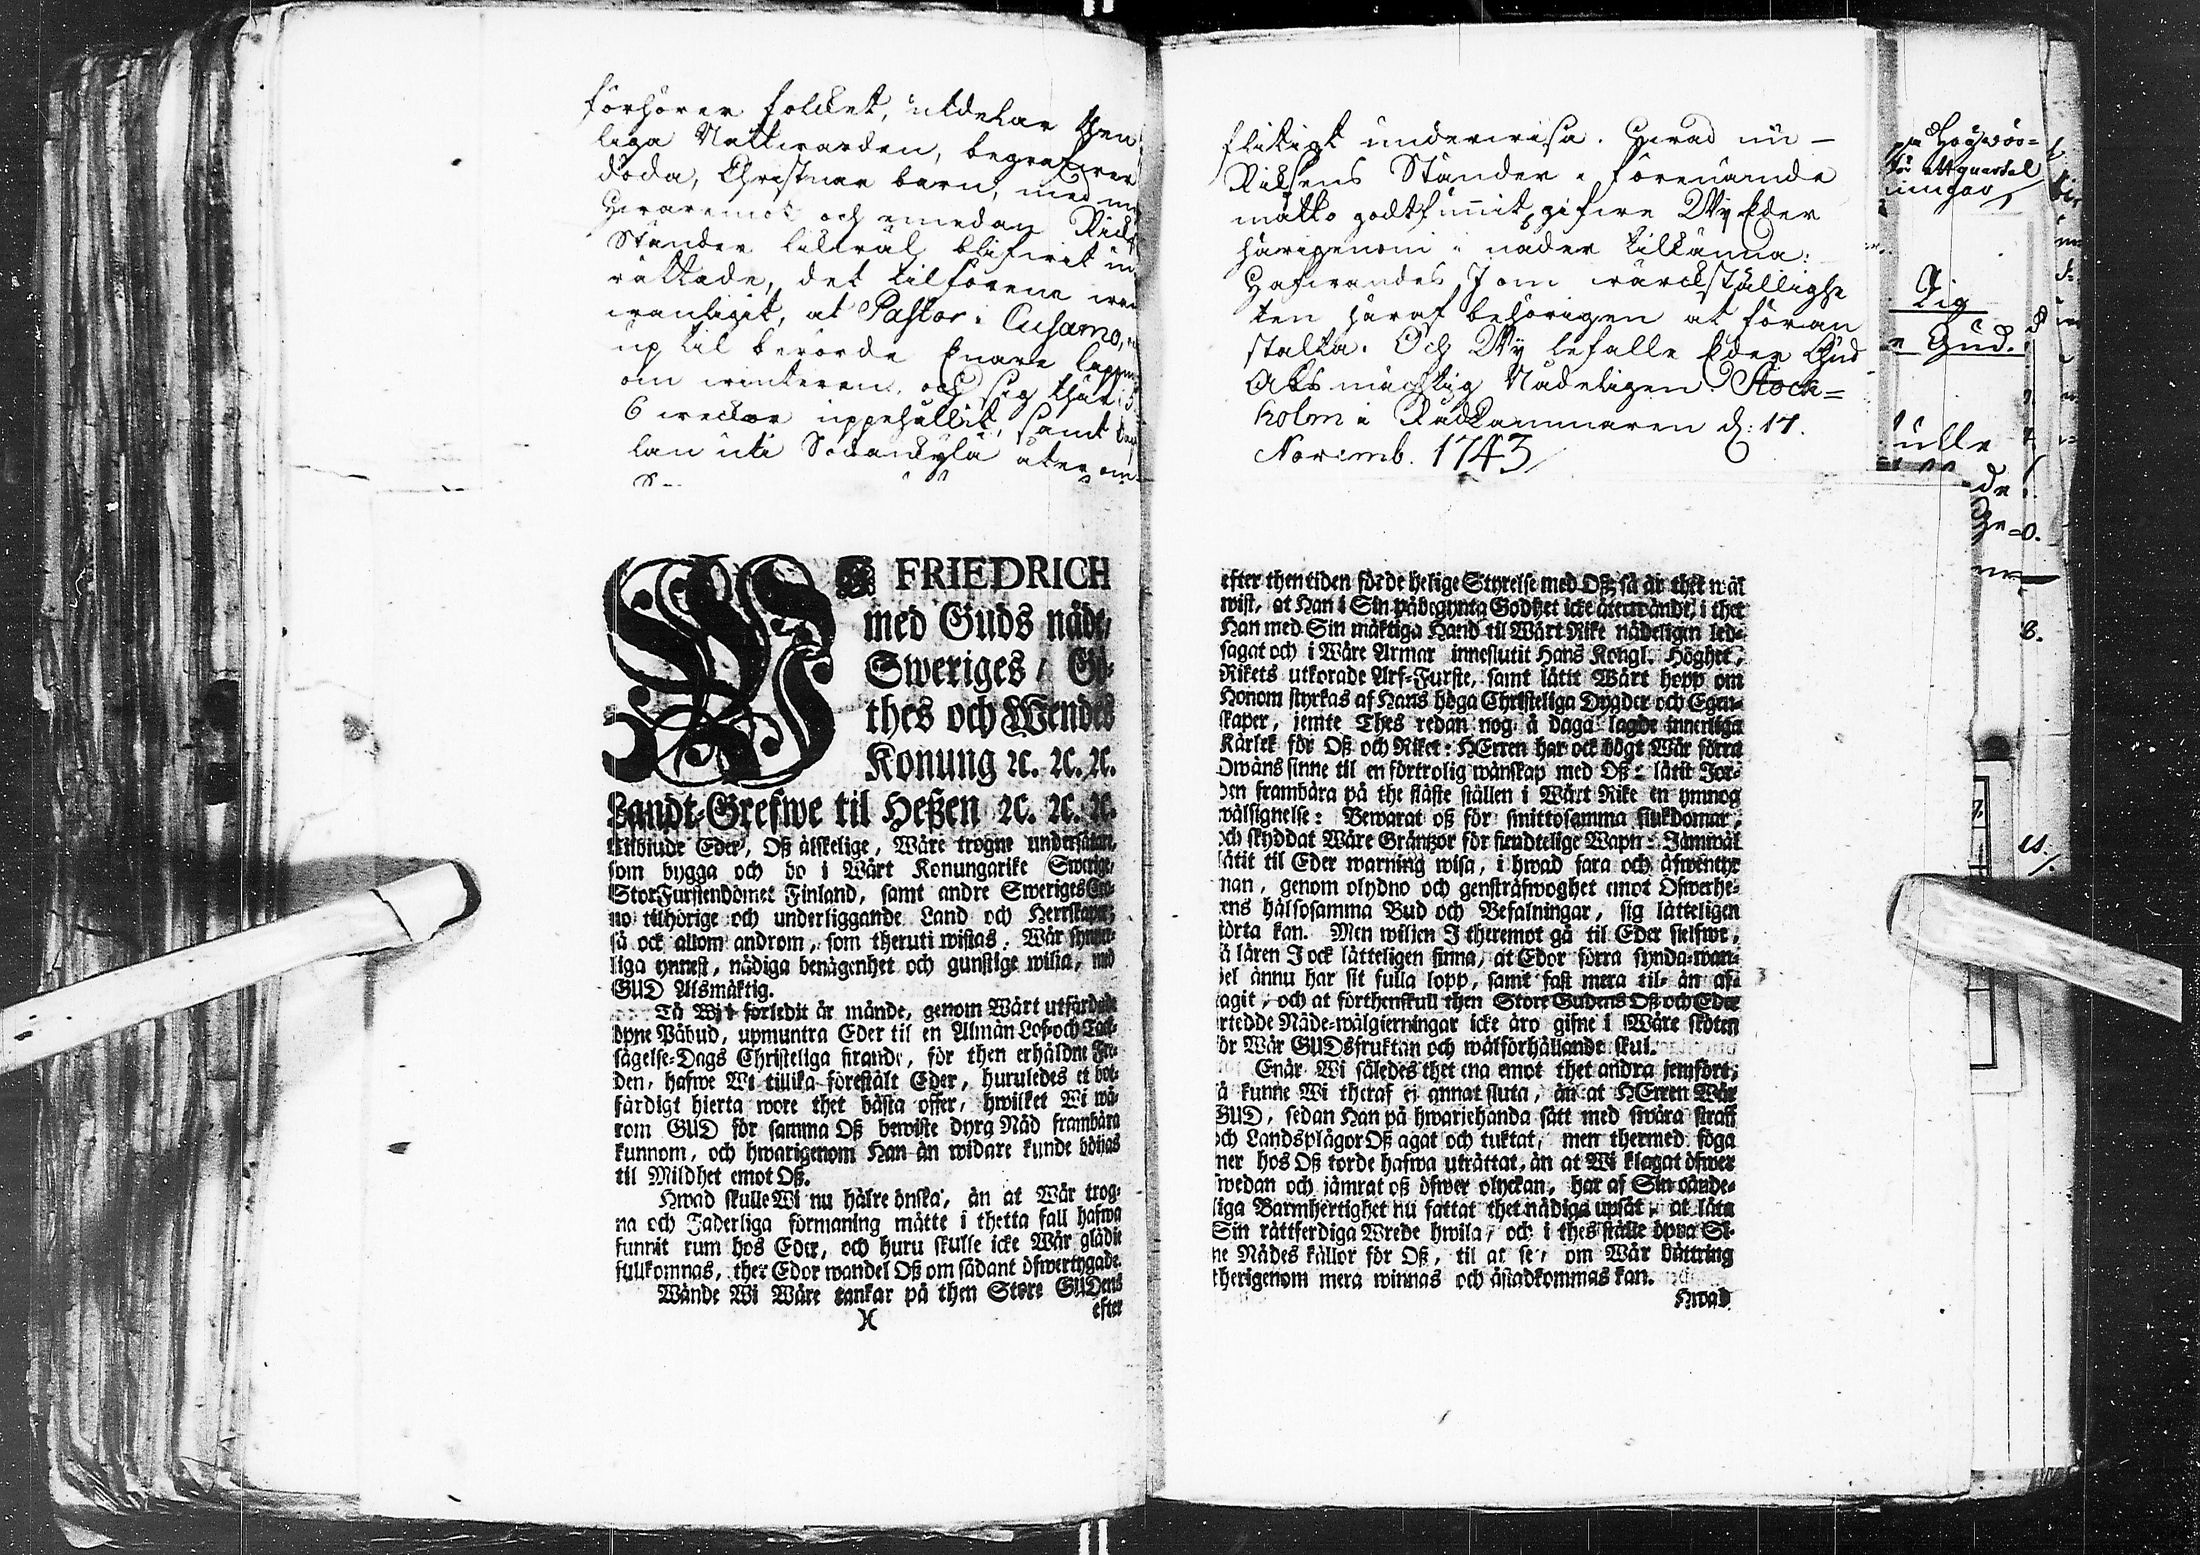 förhörer folcket, utdelar then
liga Nattwarden, begrafwer
döda, Christnar barn, med m
Hwaremot och emedan Rick
Ständer likwäl blifwit un
rättade, det tilförene wa
wanligit, at Pastor i Cusamo,
up til berörde Enare lappm
om winteren, och sig thär i 5
6 weckor uppehållit, samt
lan uti Sodankylä åter om
flitigt underwisa. Hwad nu
Riksens Ständer i förenämde
måtto godtfunnit, gifwe Wij Eder
härigenom i nåder tillkänna:
Hafwandes I om wärckställighe
ten häraf behörigen at föran
stalta. Och Wij befalle Eder Gud
Alsmächtig Nådeligen. Stock=
holm i Rådkammaren d: 17.
Novemb. 1743
på Högwör=
för ett quartal
Tig
e Gud.
ulle
de
WJ FRIEDRICH
med Guds nåde/
Sweriges/ Gö-
thes och Wendes
Konung ꝛc. ꝛc. ꝛc.
Landt-Grefwe til Heßen ꝛc. ꝛc. ꝛc.
tilbiude Eder, Oß älskelige, Wåre trogne undersåtare,
som bygga och bo i Wårt Konungarike Swerige,
StorFurstendömet Finland, samt andre Sweriges Cro-
no tilhörige och underliggande Land och Herrskaper,
så ock allom androm, som theruti wistas, Wår synner-
liga ynnest, nådiga benägenhet och gunstige wilja, med
GUD Alsmäktig.
Tå Wi i förledit år månde, genom Wårt utfärdade
öpne Påbud, upmuntra Eder til en Allmän Lof- och Tack-
sägelse-Dags Christeliga firande, för then erhåldne Fre-
den, hafwe Wi tillika förestält Eder, huruledes et bot-
färdigt hierta wore thet bästa offer, hwilket Wi wå-
rom GUD för samma Oß bewiste dyra Nåd frambära
kunnom, och hwarigenom Han än widare kunde böijas
til Mildhet emot Oß.
Hwad skulle Wi nu hälre önska, än at Wår trog-
na och Faderliga förmaning måtte i thetta fall hafwa
funnit rum hos Eder, och huru skulle icke Wår glädie
fullkomnas, ther Edor wandel Oß om sådant öfwertygade.
Wände Wi Wåre tankar på then Store GUDens
efter
)(
efter then tiden förde helige Styrelse med Oß, så är thet wäl
wist, at Han i Sin påbegynta Godhet icke återwändt, i thet
Han med Sin mäktiga Hand til Wårt Rike nådeligen led-
sagat och i Wåre Armar inneslutit Hans Kongl. Höghet,
Rikets utkorade Arf-Furste, samt låtit Wårt hopp om
Honom styrkas af Hans höga Christeliga Dygder och Egen-
skaper, jemte Thes redan nog å daga lagde innerliga
Kärlek för Oß och Riket: HErren har ock bögt Wår förra
Owäns sinne til en förtrolig wänskap med Oß: låtit Jor-
den frambära på the flåste ställen i Wårt Rike en ymnog
wälsignelse: Bewarat oß för smittosamma siukdomar,
och skyddat Wåre Gräntzor för fiendtelige Wapn: Jämwäl
låtit til Eder warning wisa, i hwad fara och äfwentyr
man, genom olydno och genstråfwoghet emot Öfwerhe-
tens hälsosamma Bud och Befalningar, sig lätteligen
störta kan. Men wiljen I theremot gå til Eder sielfwe,
så lären I ock lätteligen finna, at Edor förra synda-wan-
del ännu har sit fulla lopp, samt fast mera til- än af-
tagit, och at förthenskull then Store Gudens Oß och Eder
ertedde Nåde-wälgierningar icke äro gifne i Wåre sköten
för Wår GUDsfruktan och wälförhållande skul.
Enär Wi således thet ena emot thet andra jemföre,
så kunne Wi theraf ej annat sluta, än at HErren Wår
GUD, sedan Han på hwariehanda sätt med swåra straff
och Landsplågor Oß agat och tuktat, men thermed föga
mer hos Oß torde hafwa uträttat, än at Wi klagat öfwer
swedan och jämrat oß öfwer olyckan, har af Sin oände-
liga Barmhertighet nu fattat thet nådiga upsåt, at låta
Sin rättferdiga Wrede hwila, och i thes ställe öpna Si-
ne Nådes källor för Oß, til at se, om Wår bättring
therigenom mera winnas och åstadkommas kan.
Hwad